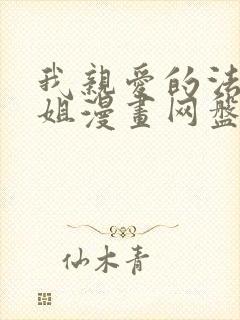 我親愛的法
姐漫畫网盤
仙木青